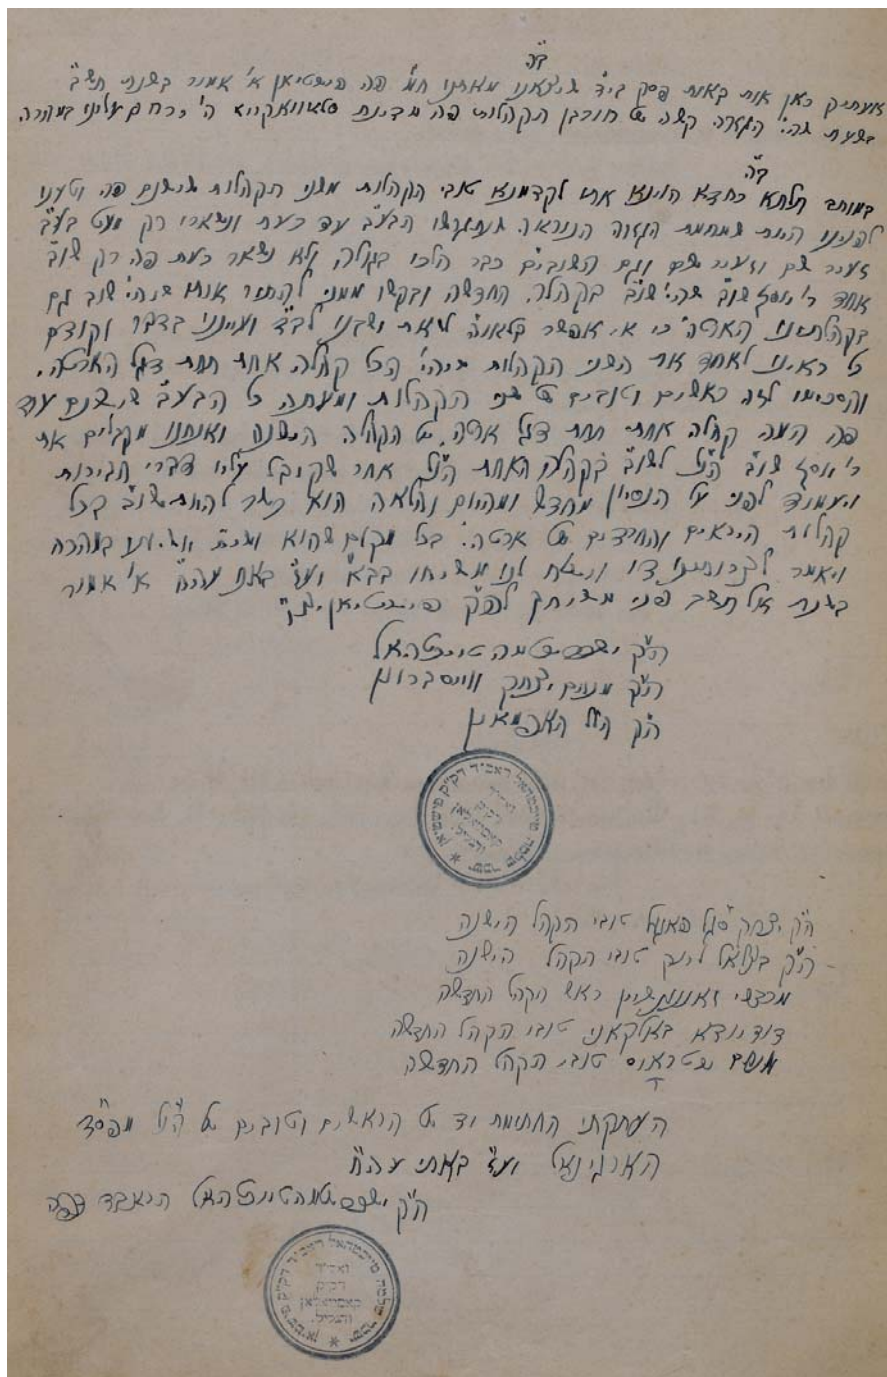 ב"ה
אעתיק כאן אות באות פסק ביד שיצאנו מאתנו חמ פה פישטיאן א' אמור בשנת תש"ב
בשעת שהי' הגזרה קשה של חורבן הקהלות פה מדינת סלאוואקייא ה' ירחם עלינו במהרה
ב"ה
במותב תלתא כחדא הוינא אתו לקדמנא טובי הקהלות משני הקהלות שישנם פה וטענו
לפנינו היות שמחמת הגזרה הנוראה נתגרשו הבע"ב עד כעת ונשארו רק מעט בע"ב
זעיר שם וזעיר שם וגם השובי"ם כבר הלכו בגולה ולא נשאר כעת פה רק שוב
אחד ר' יוסף שו"ב שהי' שו"ב בקהלה החדשה ובקשו ממני להתיר אותו שיהי' שוב גם
בקהלתינו הארטה' כי אי אפשר בלאו"ה לזאת ישבנו לב"ד ועיינינו בדבר וקודם
כל ראינו לאחד את השני הקהלות שיהי' הכל קהלה אחת תחת דגל הארטה.
והסכימו לזה ראשים וטובים של שני הקהלות ומעתה כל הבע"ב שישנם עוד
פה המה קהלה אחת תחת דגל ארטה של הקהלה הישנה ואנחנו מקבלים את
ר' יוסף שו"ב הנ"ל לשו"ב בקהלה האחת הנ"ל אחר שקיבל עליו דברי חבירות
ויעמוד לפני על הנסיון מחדש ומהיום והלאה הוא כשר להיות שו"ב בכל
קהלות היראים והחרדים של ארטה' בכל מקום שהוא והשי"ת יושיענו במהרה
ויאמר לצרותינו די וישלח לנו משיחו בב"א ועז באתי עה"ח א' אמור
בשנת אל תשב פני משיחך לפ"ק פישטיאן
הק' יששכר שלמה טייכטהאל
הק' מנחם יצחק ווייסברוין
הק' הלל האפמאן
יששכר שלמה טייכטהאל ראב"ד דק"ק פישטיאן
ואב"ד
דק"ק
והגליל.
הק' יצחק סגל פאגעל טובי הקהל הישנה
הק' בצלאל לינק טובי הקהל הישנה
מרדכי זאננענשיין ראש הקהל החדשה
דוד יודא באלקאני טובי הקהל החדשה
משה שטראוס טובי הקהל החדשה
העתקתי החתימת יד של הראשים וטובים של הנ"ל מפס"ד
הארגינאל ועז באתי עה"ח
הק' יששכר שלמה טייכטהאל האבד פה
יששכר שלמה טייכטהאל ראב"ד דק"ק פישטיאן
ואב"ד
דק"ק
והגליל.